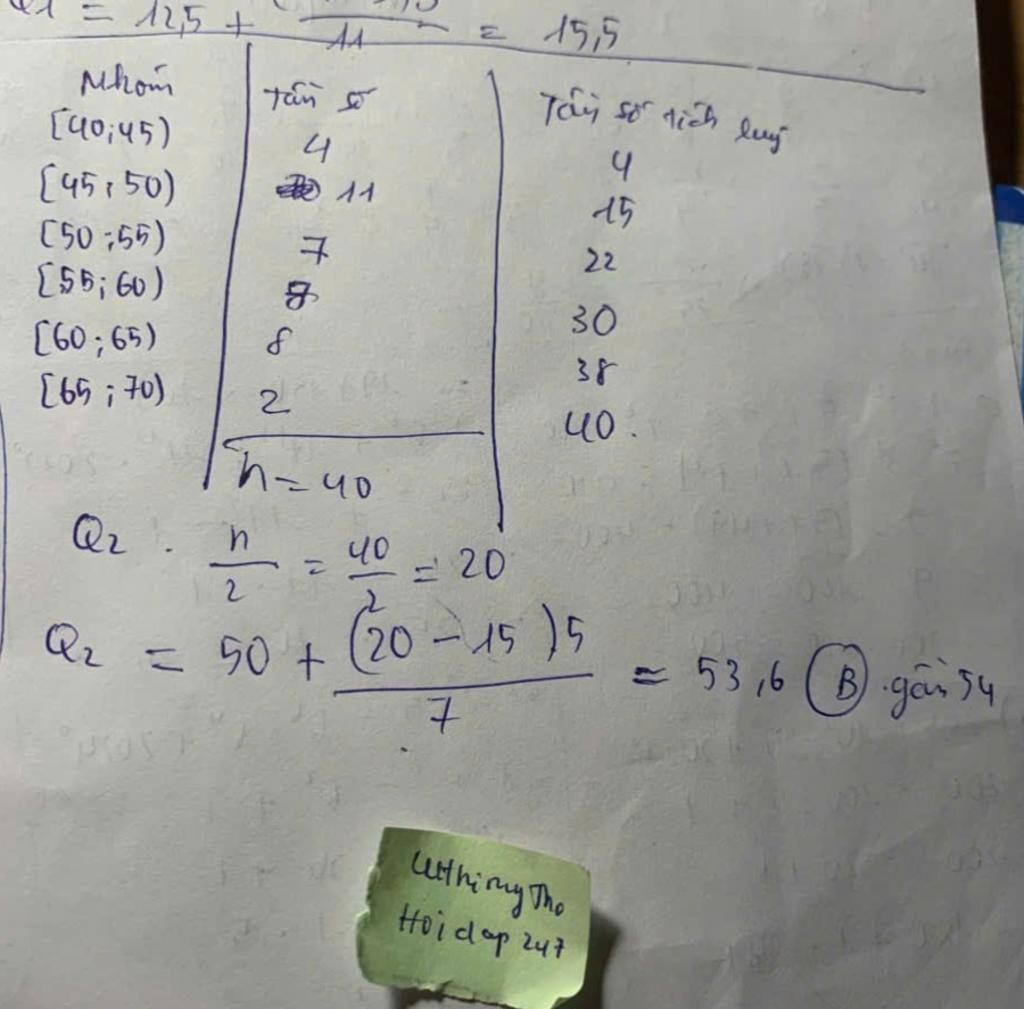 Q1 = 12,5 + / 11 = 15,5
Nhóm Tần số Tần số tích luỹ
[40;45) 4 4
[45;50) 11 15
[50;55) 7 22
[55;60) 8 30
[60;65) 8 38
[65;70) 2 40.
n = 40
Q2. n/2 = 40/2 = 20
Q2 = 50 + (20 - 15)5 / 7 = 53,6 B gần 54
Hoidap 247